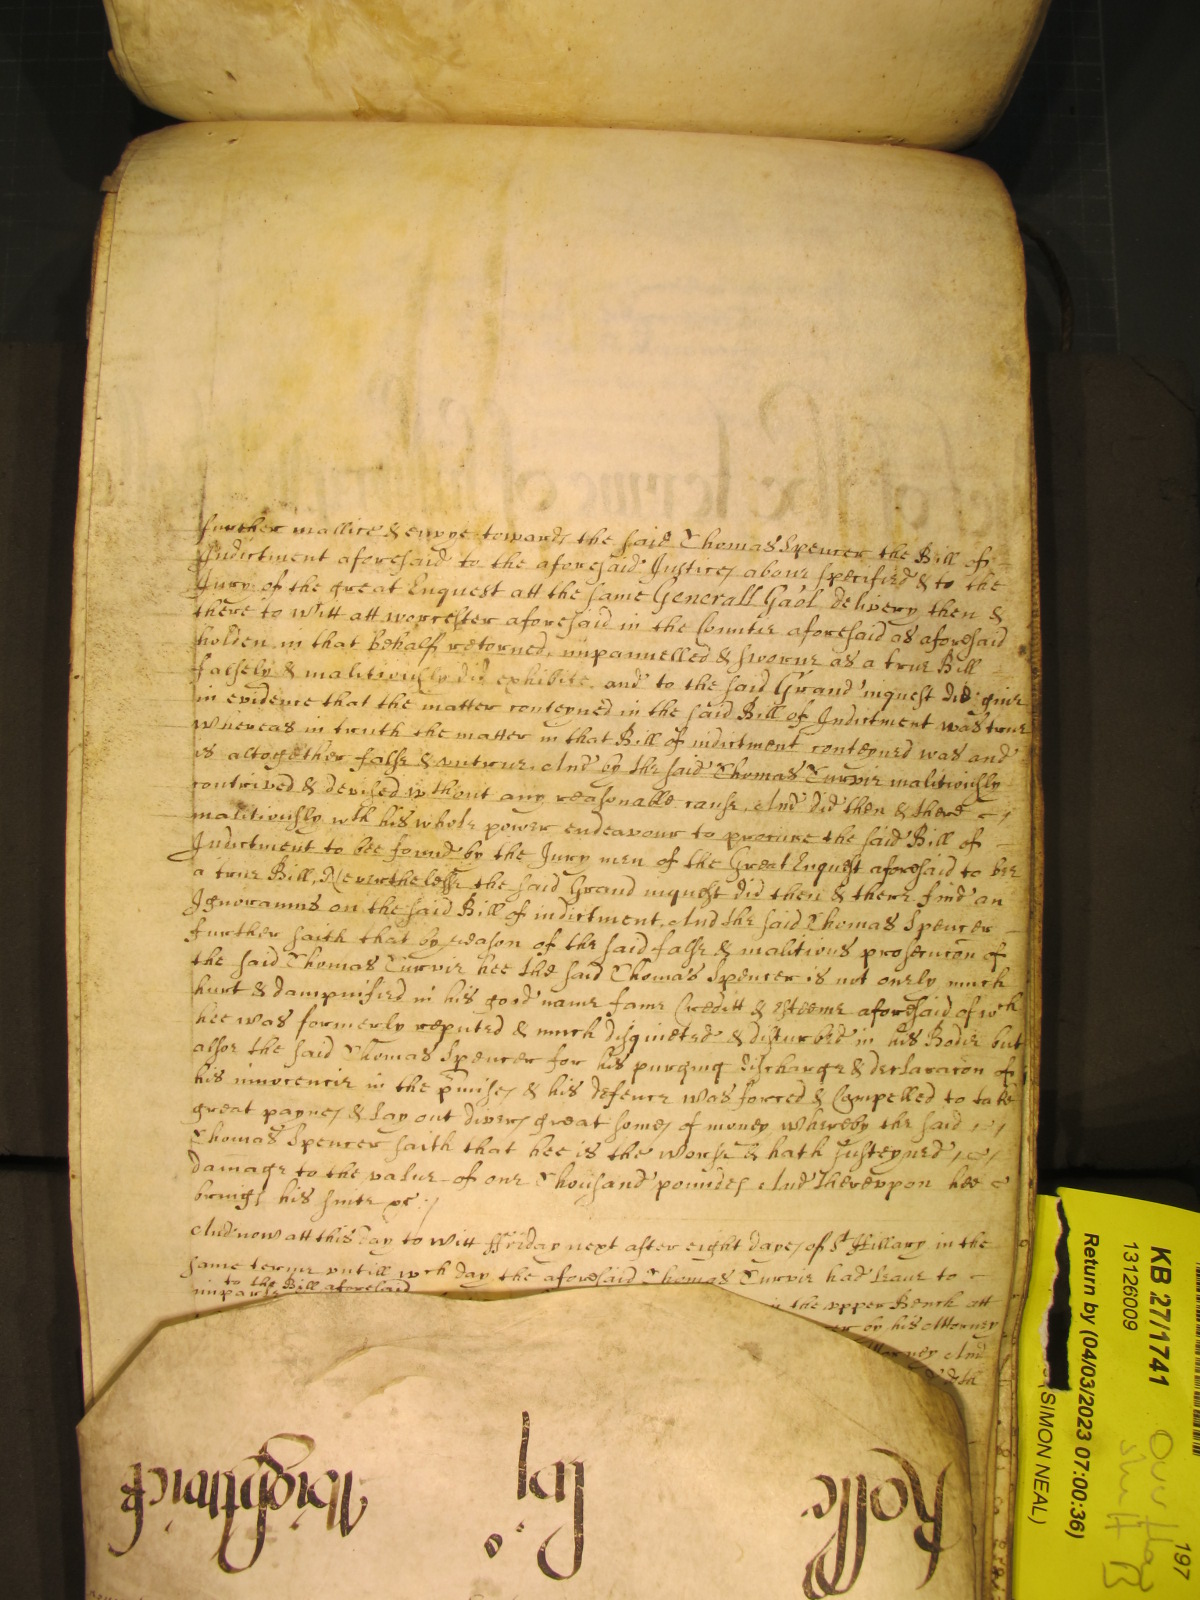 further mallice & envye towards the said Thomas Spencer the Bill of
Indictment aforesaid to the aforesaid Justices above specified & to the
Jury of the great Enquest att the same Generall Gaol delivery then &
there to witt att worcester aforesaid in the Countie aforesaid as aforesaid
holden in that behalf retorned, impannelled & sworne as a true Bill
falsely & malitiously did exhibite, and to the said Grand inquest did give
in evidence that the matter conteyned in the said Bill of Indictment was true
whereas in truth the matter in that Bill of indictment conteyned was and
is altogether false & untrue. And by the said Thomas Turvie malitiously
contrived & devised wthout any reasonable cause, And did then & there
malitiously wth his whole power endeavour to procure the said Bill of
Indictment to bee found by the Jury men of the Great Enquest aforesaid to bee
a true Bill, Neverthelesse the said Grand inquest did then & there find an
Ignoramus on the said Bill of indictment. And the said Thomas Spencer
further saith that by reason of the said false & malitious prosecucon of
the said Thomas Turvie hee the said Thomas Spencer is not onely much
hurt & dampnified in his good name fame Creditt & esteeme aforesaid of wch
hee was formerly reputed & much disquieted & disturbed in his Bodie but
alsoe the said Thomas Spencer for his purging discharge & declaracon of
his innocencie in the pmises & his defence was forced & Compelled to take
great paynes & lay out divers great somes of money whereby the said
Thomas Spencer saith that hee is the worse & hath susteyned
damage to the value of one Thousand poundes And Thereupon hee
brings his suite &c
And now att this day to witt ffriday next after eight dayes of St Hillary in the
same terme untill wch day the aforesaid Thomas Turvie had leave to
imparle to the Bill aforesaid
in the upper Bench att
by his Attorney
And
Rolle
lvj
Wightwick
KB 27/1741
13126009
Return by (04/03/2023 07:00:36)
SIMON NEAL)
197